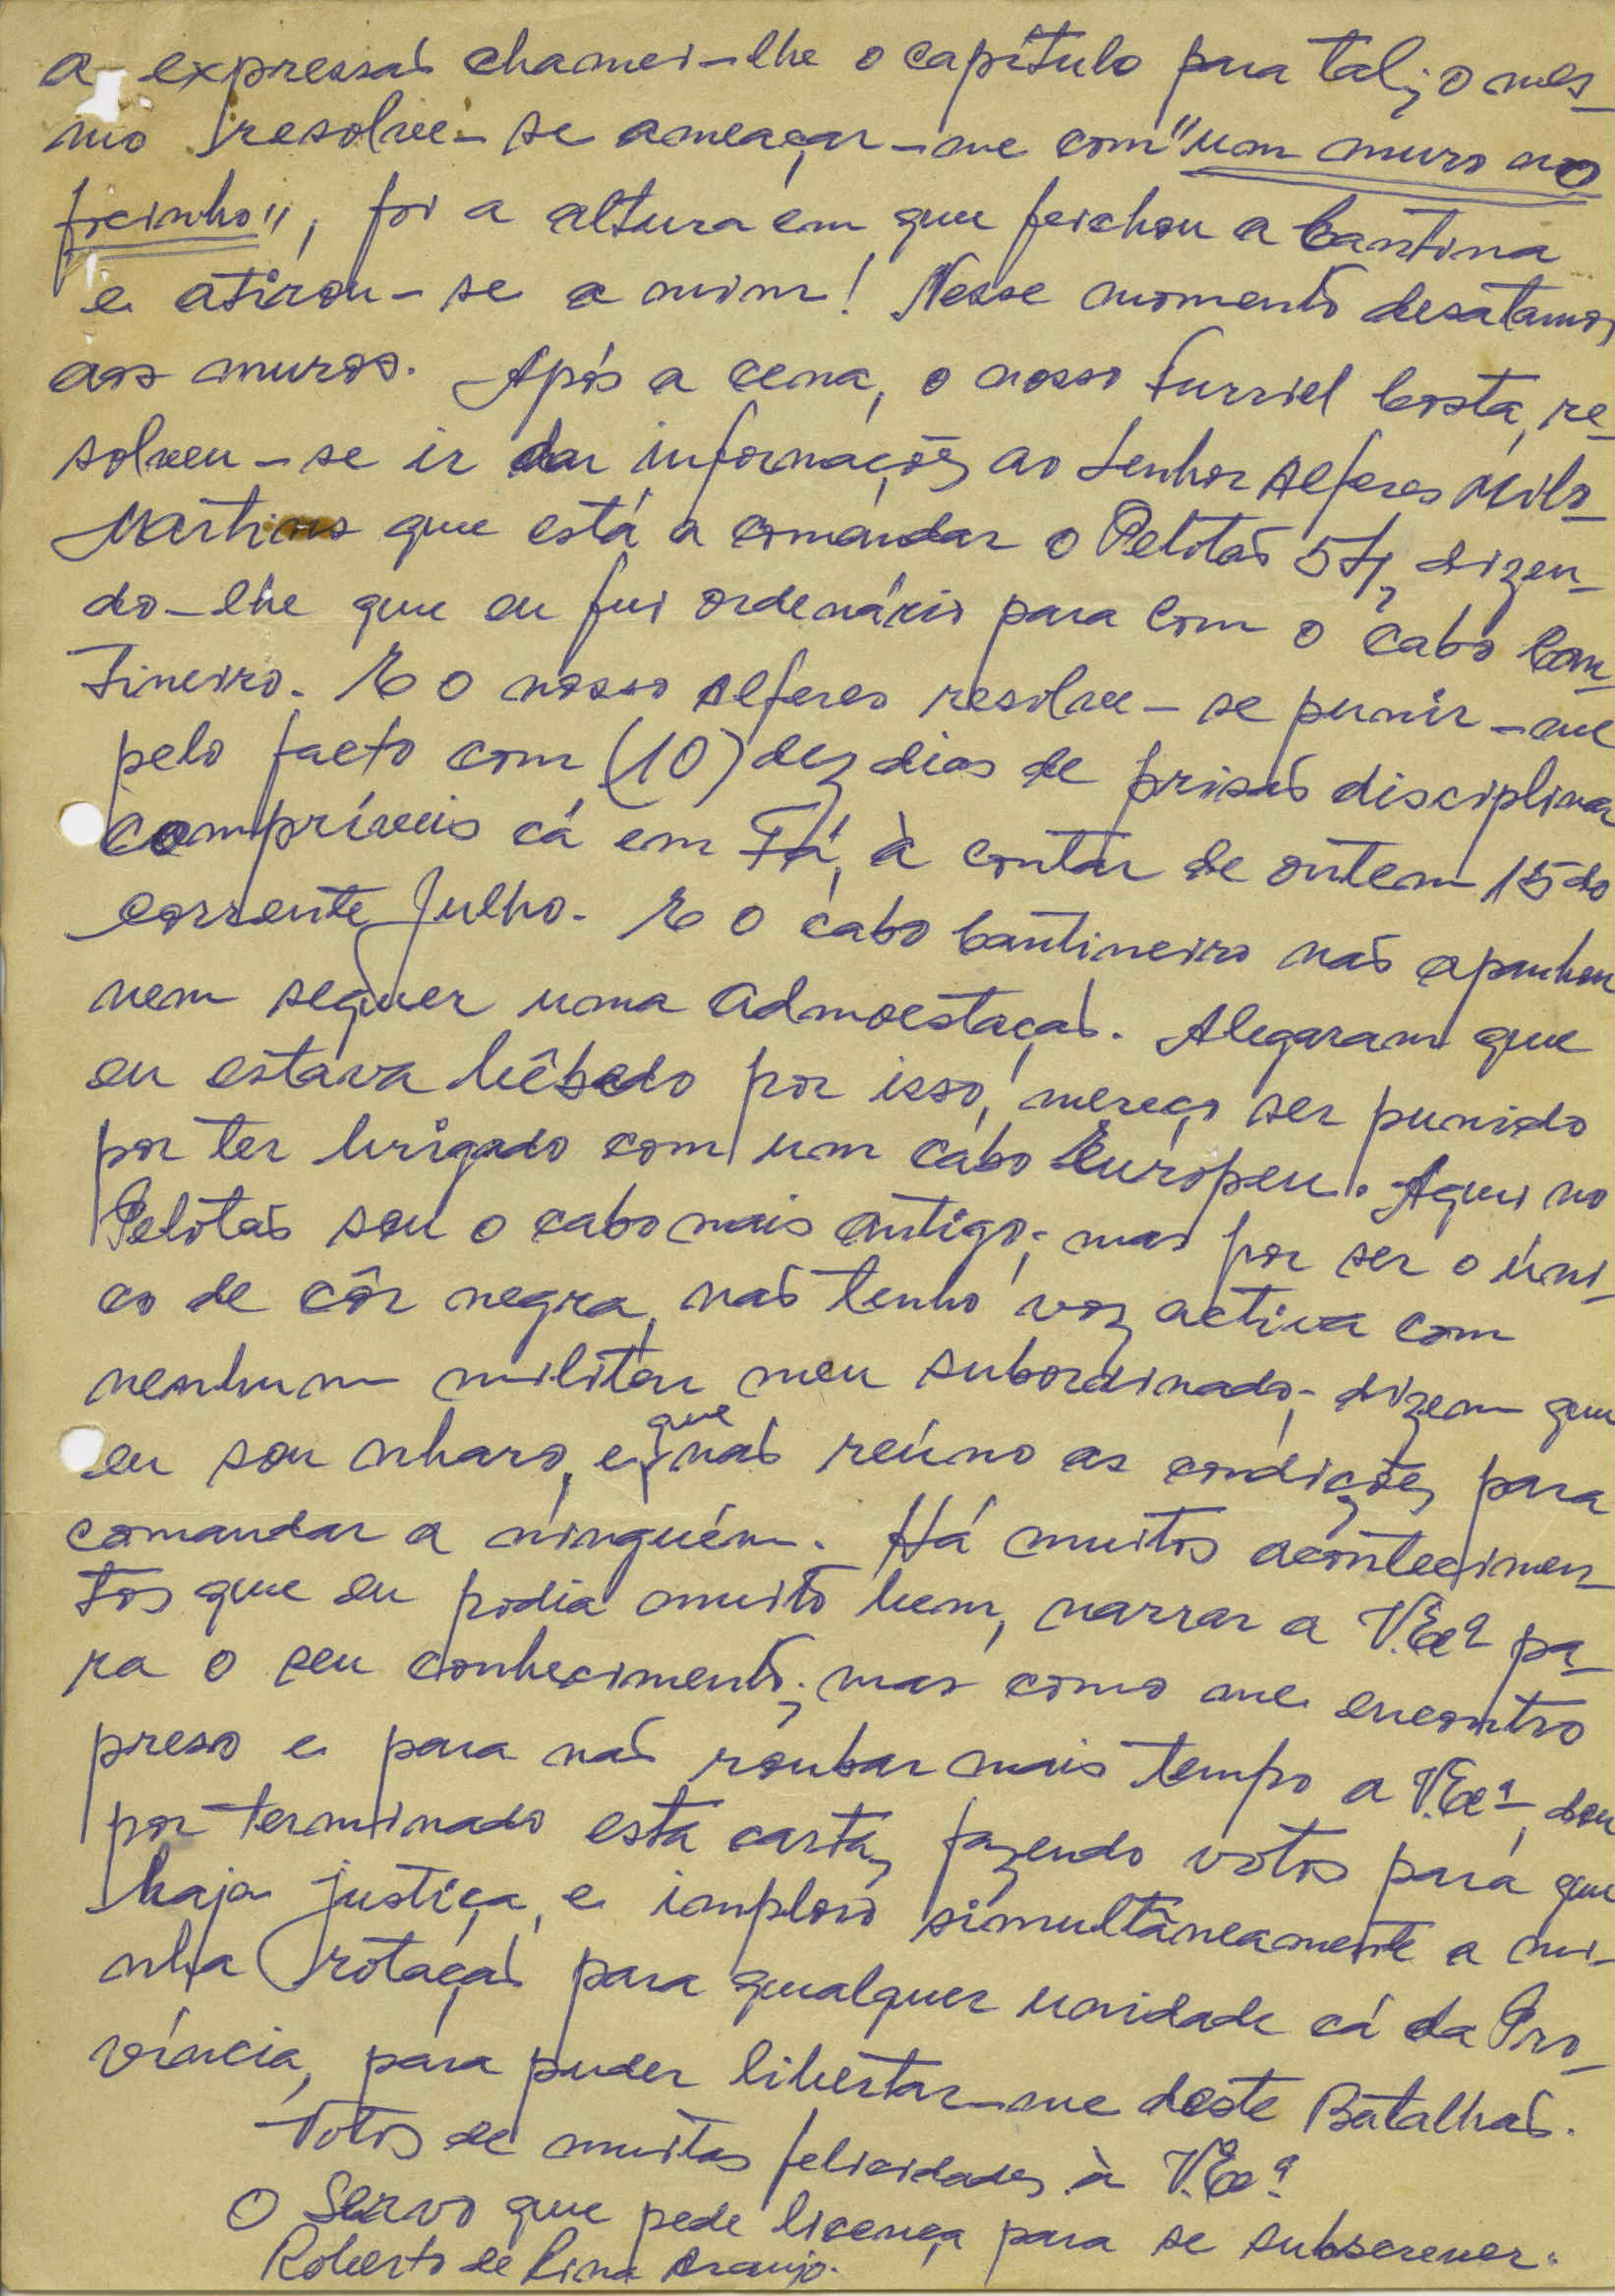 a expressão chamei-lhe o capítulo para tal; o mes-
mo resolve-se ameaçar-me com "um muro no
focinho", foi a altura em que feichou a Cantina
e atirou-se a mim! Nesse momento desatamos
aos muros. Após a cena, o nosso Furriel Costa, re-
solveu-se ir dar informações ao Senhor Alferes
Martins que está a comandar o Pelotão 54, dizen-
do-lhe que eu fui ordenário para com o cabo Can-
tineiro. E o nosso Alferes resolve-se punir-me
pelo facto com (10) dez dias de prisão disciplinar
compríveis cá em Fá, à contar de ontem 15 do
corrente Julho. E o cabo Cantineiro não apanhou
nem sequer uma admoestação. Alegaram que
eu estava bêbedo por isso, mereço ser punido
por ter brigado com um cabo Européu. Aqui no
Pelotão sou o cabo mais antigo; mas por ser o úni-
co de côr negra, não tenho voz activa com
nenhum militar meu subordinado; dizem que
eu sou nharo, e que não reúno as condições para
comandar a ninguém. Há muitos acontecimen-
tos que eu podia muito bem, narrar a V.Exª pa-
ra o seu conhecimento; mas como me encontro
preso e para não roubar mais tempo a V.Exª, dou
por terminado esta carta, fazendo votos para que
haja justiça, e imploro simultâneamente a mi-
nha rotação para qualquer unidade cá da Pro-
víncia, para puder libertar-me deste Batalhão.
Votos de muitas felicidades à V.Exª
O Servo que pede licença para se subscrever.
Roberto de Lima Araujo.